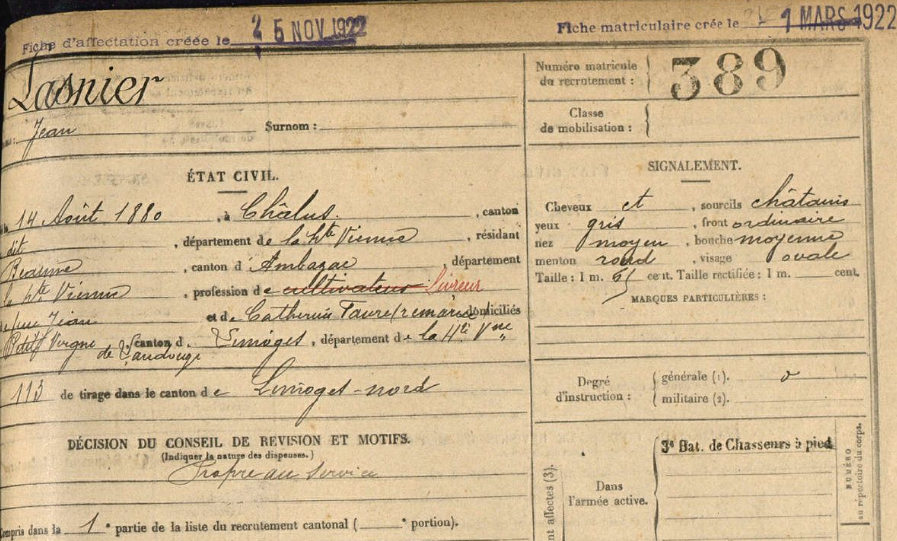 Fiche d'affectation créée le 25 NOV 1922
Fiche matriculaire créée le 1 MARS 1922
Lasnier
Jean Surnom :
ÉTAT CIVIL.
14 Août 1880, à Châlus, canton
dit, département de la Hte Vienne, résidant
Beaune, canton d'Ambazac, département
la Hte Vienne, profession de cultivateur livreur
feu Jean et de Catherine Faure (remariée) domiciliés
Petit Vergne de Landouge, canton d. Limoges, département de la Hte Vne
113 de tirage dans le canton de Limoges-nord
DÉCISION DU CONSEIL DE REVISION ET MOTIFS.
(Indiquer la nature des dispenses.)
Propre au service
Compris dans la 1e partie de la liste du recrutement cantonal ( e portion).
Numéro matricule
du recrutement : 389
Classe
de mobilisation :
SIGNALEMENT.
Cheveux et, sourcils châtains
yeux gris, front ordinaire
nez moyen, bouche moyenne
menton rond, visage ovale
Taille : 1 m. cent. Taille rectifiée : 1 m. cent.
MARQUES PARTICULIÈRES :
Degré
d'instruction :
générale (1). 0
militaire (2).
3e Bat. de Chasseurs à pied
Dans
l'armée active.
nt affectés (3).
NUMÉRO
au répertoire du corps.